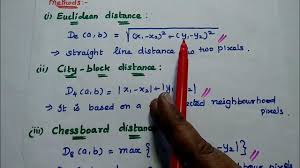 Methods:-
(i) Euclidean distance:
De (a,b) = √(x₁-x₂)²+(y₁-y₂)²
→ straight line distance two pixels.
(ii) City-block distance:
D₄ (a,b) = |x₁-x₂|+|y₁-y₂|
→ It is based on a neighbourhood
pixels.
(iii) Chessboard distance:
D₈ (a,b) = max {